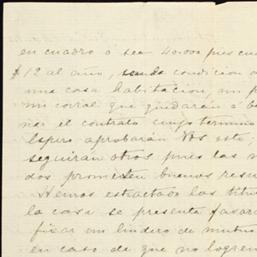 en cuadro o sea 40.000 pies cua
$12 al año, siendo condicion
una casa habitacion, un p
un corral que quedarán a be
nar el contrato cuyo termino
Espero aprobarán Vds este,
seguirán otros pues las n
dos prometen buenos resu
Hemos estractado los titu
la casa se presenta favora
fijar un lindero de mutuo
en caso de que no logrem